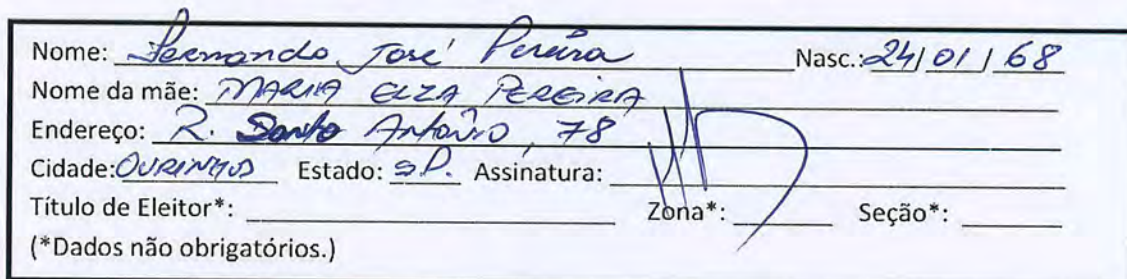 Nome: Fernando José Pereira Nasc.: 24/01/68
Nome da mãe: MARIA ELZA PEREIRA
Endereço: R. Santo Antônio, 78
Cidade: OURINHOS Estado: S.P. Assinatura:
Título de Eleitor*: Zona*: Seção*:
(*Dados não obrigatórios.)